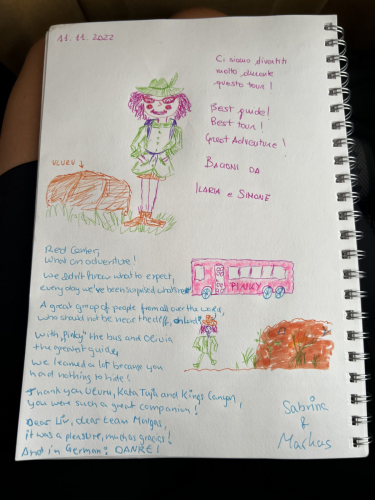 11.11.2022
Ci siamo divertiti
molto durante
questo tour!
Best guide!
Best tour!
Great Adventure!
BACIONI DA
ILARIA e SIMONE
ULURU ↓
Red Center,
What an adventure!
We didn't know what to expect,
every day we've been surprised what's next
PINKY
A great group of people from all over the world,
who should not be near the cliff,
With "Pinky" the bus and Olivia
the greatest guide,
we learned a lot because you
had nothing to hide!
Thank you Uluru, Kata Tjuta and Kings Canyon,
you were such a great companion!
Dear Liv, dear team
it was a pleasure, muchas gracias!
And in German: DANKE!
Sabrina
&
Markus